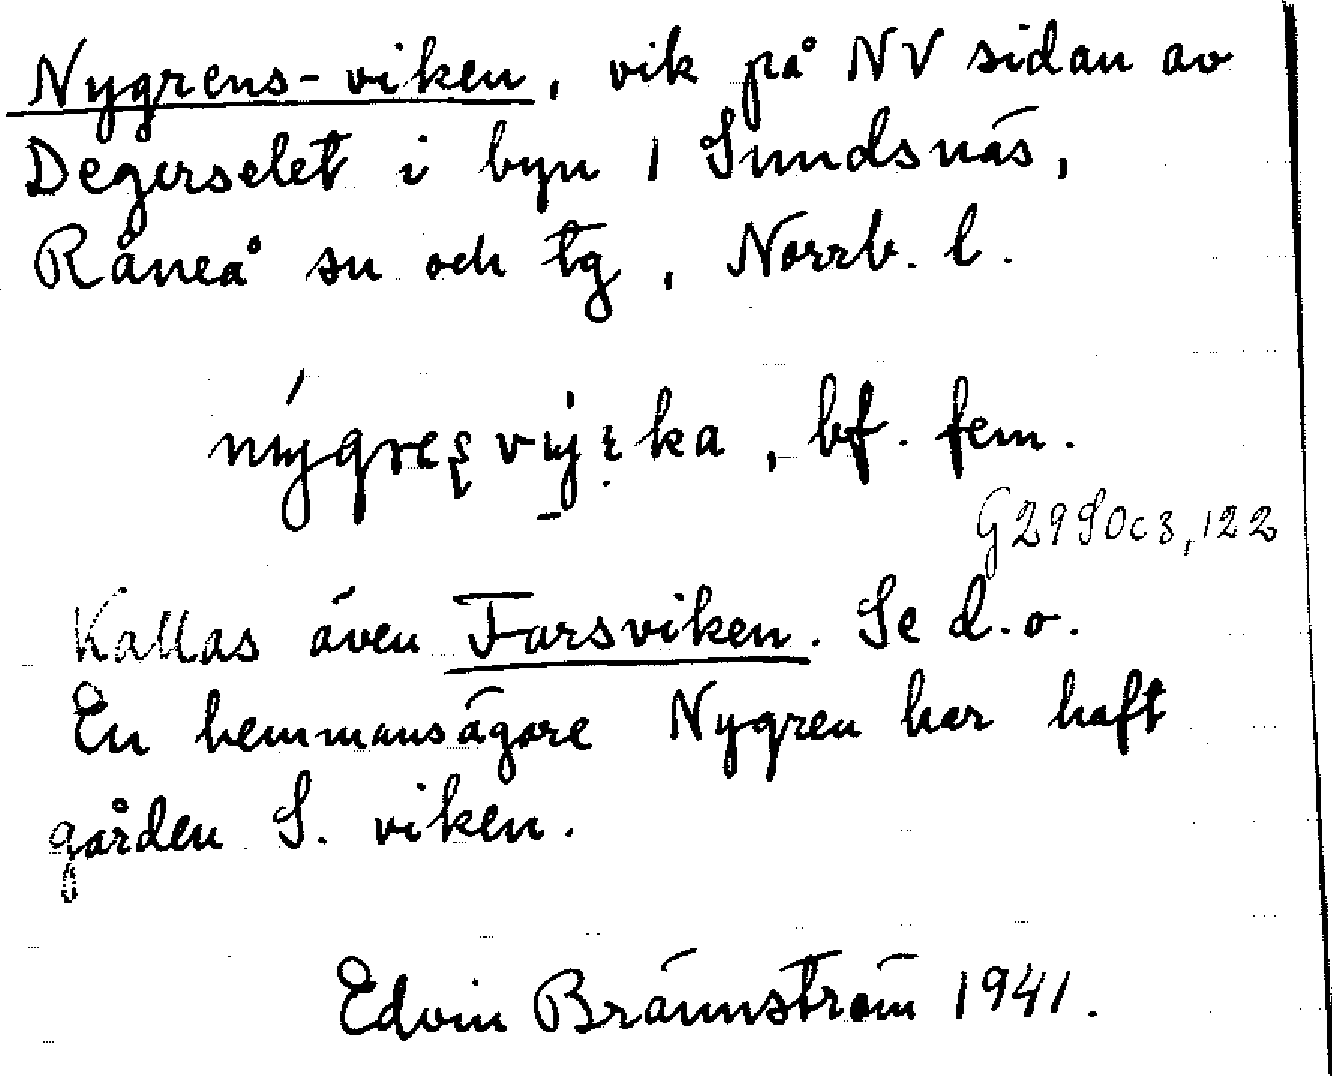 Nygrens-viken, vik på NV sidan av
Degerselet i byn 1 Sundsnäs,
Råneå sn och tg, Norrb. l.
bf. fem.
G29SOc3,122
Kallas även Farsviken. Se d.o.
En hemmansägare Nygren har haft
gården S. viken.
Edvin Brännström 1941.